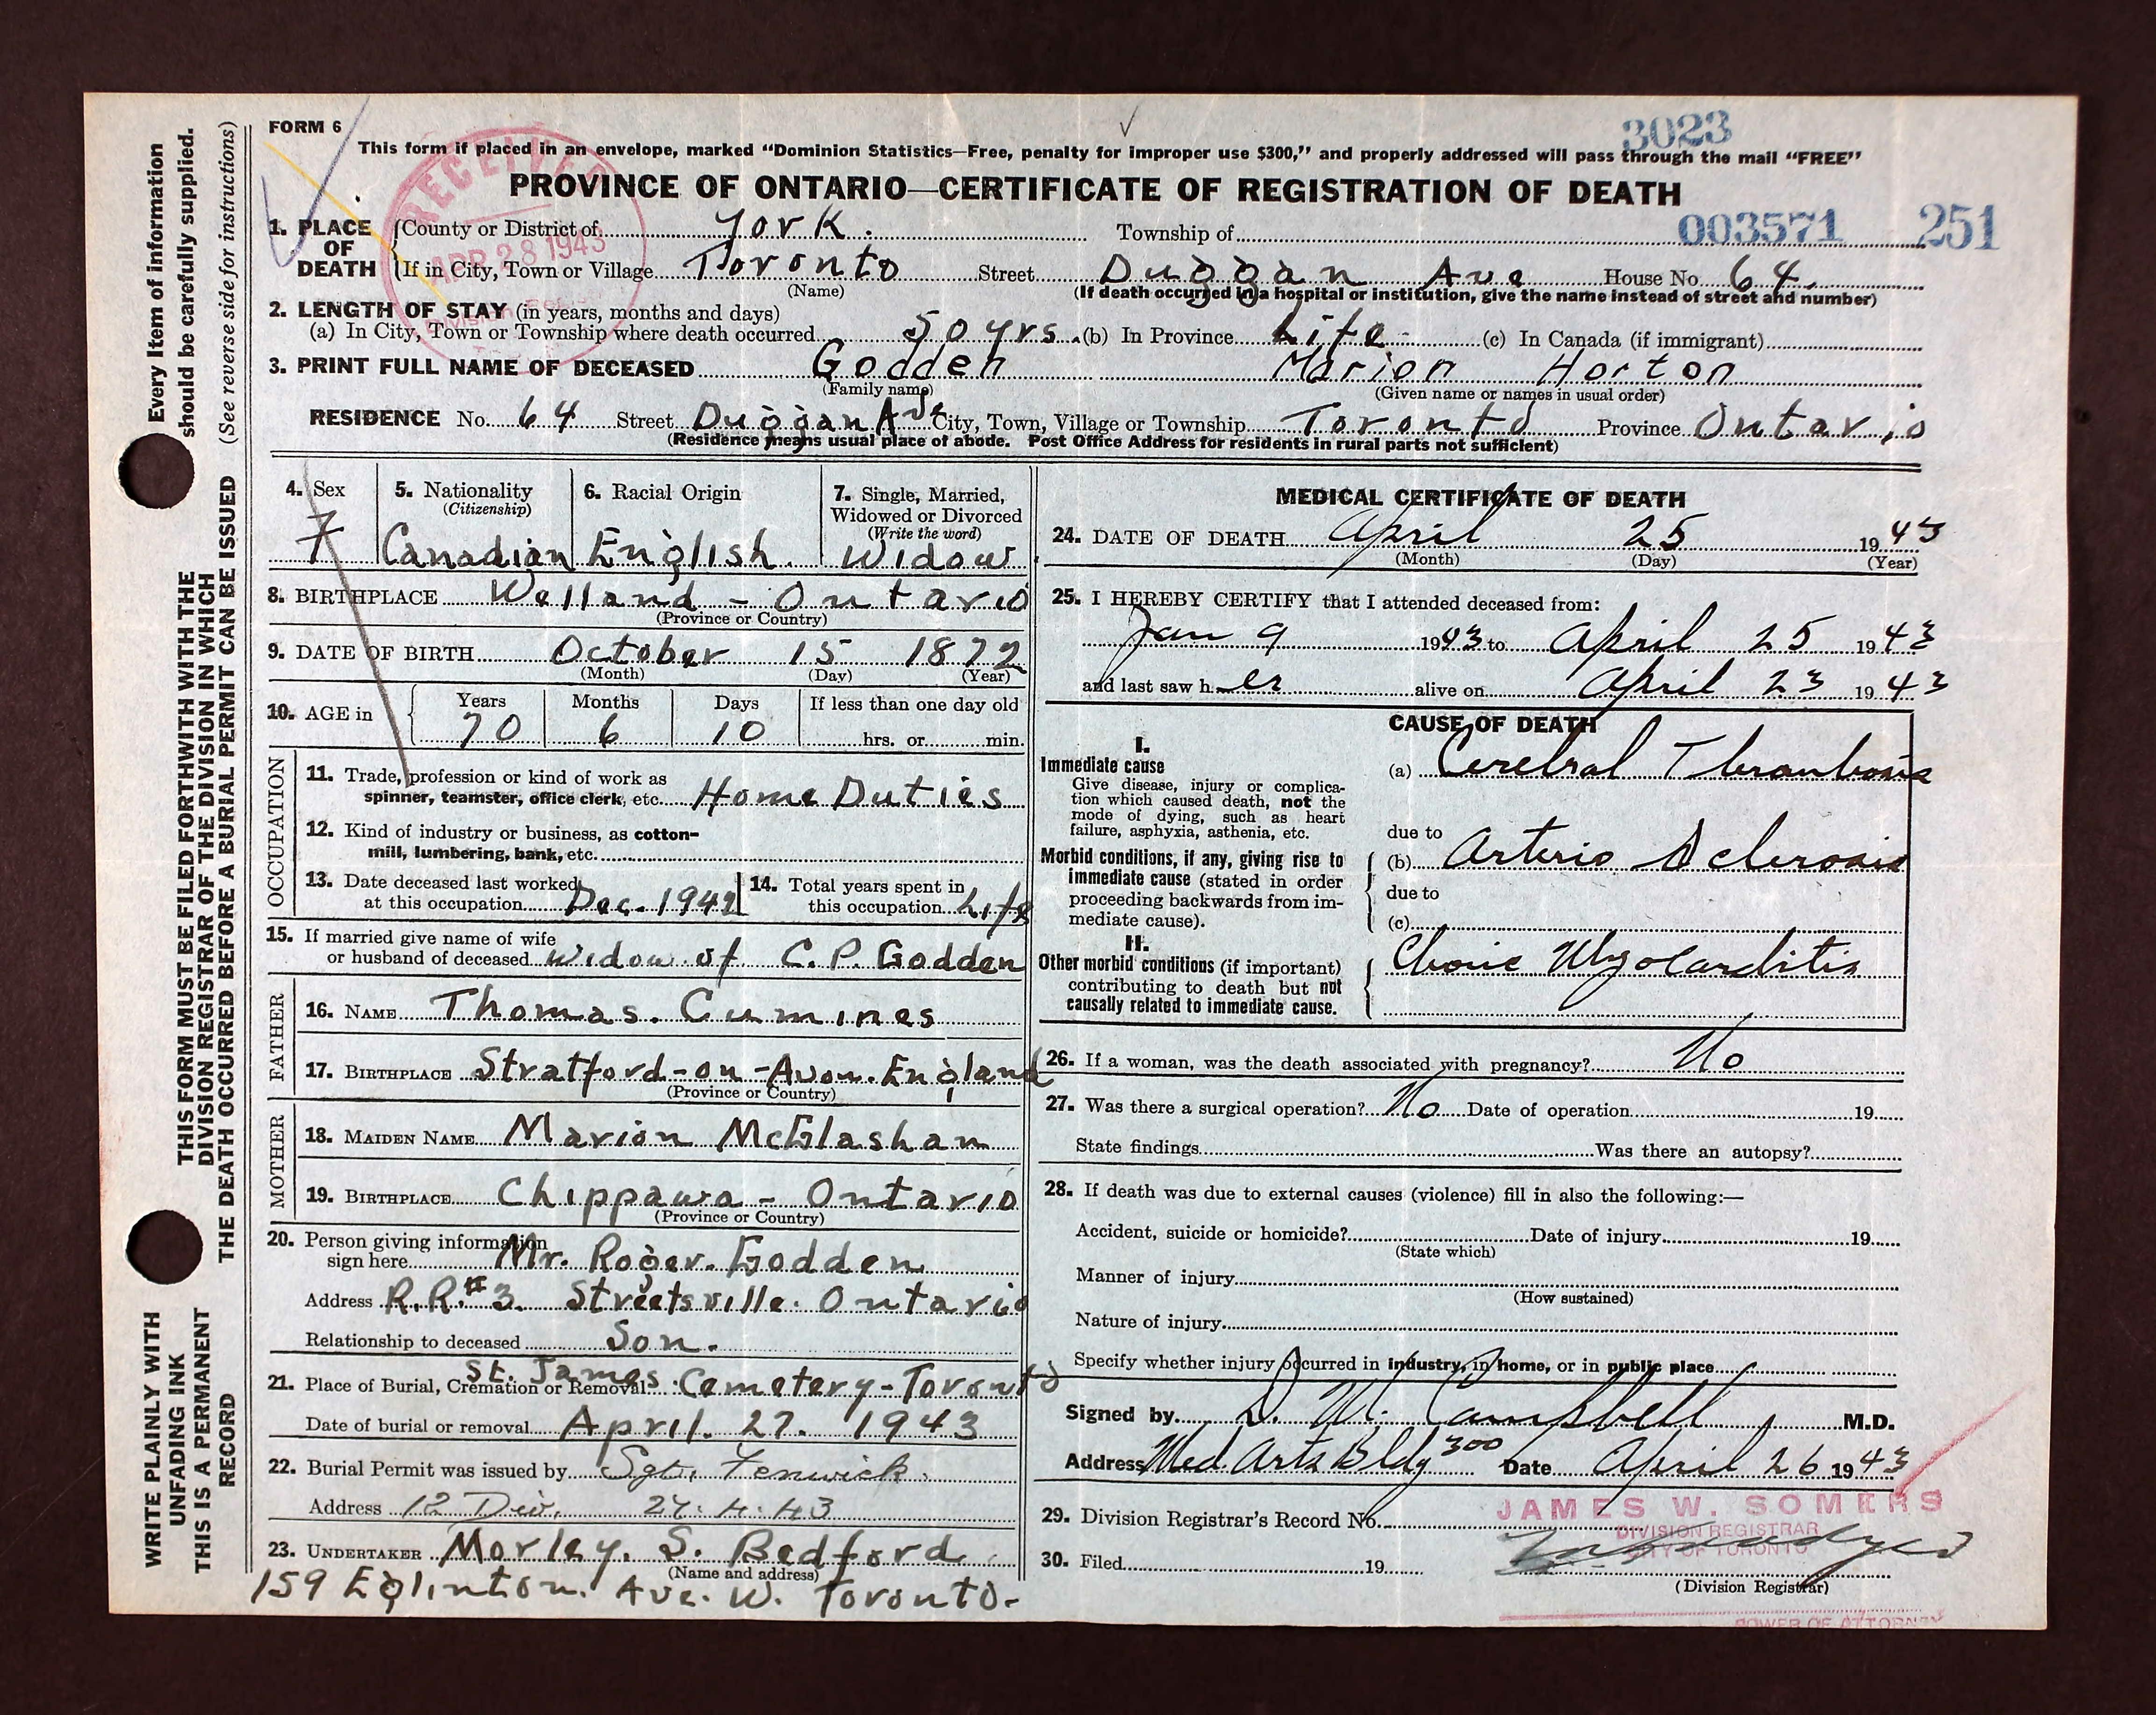 FORM 6
3023
This form if placed in an envelope, marked "Dominion Statistics—Free, penalty for improper use $300," and properly addressed will pass through the mail "FREE"
PROVINCE OF ONTARIO—CERTIFICATE OF REGISTRATION OF DEATH
RECEIVED
APR 28 1943
003571 251
1. PLACE OF DEATH
County or District of York. Township of
If in City, Town or Village Toronto Street Duggan Ave House No. 64.
(Name) (If death occurred in a hospital or institution, give the name instead of street and number)
2. LENGTH OF STAY (in years, months and days)
(a) In City, Town or Township where death occurred 50 yrs. (b) In Province Life (c) In Canada (if immigrant)
3. PRINT FULL NAME OF DECEASED Godden Marion Horton
(Family name) (Given name or names in usual order)
RESIDENCE No. 64 Street Duggan Ave City, Town, Village or Township Toronto Province Ontario
(Residence means usual place of abode. Post Office Address for residents in rural parts not sufficient)
4. Sex F
5. Nationality (Citizenship) Canadian
6. Racial Origin English.
7. Single, Married, Widowed or Divorced (Write the word) Widow.
8. BIRTHPLACE Welland - Ontario
(Province or Country)
9. DATE OF BIRTH October 15 1872
(Month) (Day) (Year)
10. AGE in Years 70 Months 6 Days 10 If less than one day old hrs. or min.
OCCUPATION
11. Trade, profession or kind of work as
spinner, teamster, office clerk, etc. Home Duties
12. Kind of industry or business, as cotton-
mill, lumbering, bank, etc.
13. Date deceased last worked
at this occupation Dec. 1942
14. Total years spent in
this occupation Life
15. If married give name of wife
or husband of deceased widow of C. P. Godden
FATHER
16. NAME Thomas. Cummines
17. BIRTHPLACE Stratford-on-Avon. England
(Province or Country)
MOTHER
18. MAIDEN NAME Marion McGlashan
19. BIRTHPLACE Chippawa - Ontario
(Province or Country)
20. Person giving information
sign here Mr. Roger. Godden
Address R.R.#3. Streetsville. Ontario
Relationship to deceased Son.
21. Place of Burial, Cremation or Removal St. James Cemetery - Toronto
Date of burial or removal April. 27. 1943
22. Burial Permit was issued by Sgt. Fenwick.
Address 12 Div. 27.4.43
23. UNDERTAKER Morley. S. Bedford
(Name and address)
159 Eglinton. Ave. W. Toronto-
MEDICAL CERTIFICATE OF DEATH
24. DATE OF DEATH April 25 1943
(Month) (Day) (Year)
25. I HEREBY CERTIFY that I attended deceased from:
Jan 9 1943 to April 25 1943
and last saw her alive on April 23 1943
CAUSE OF DEATH
I.
Immediate cause
Give disease, injury or complica-
tion which caused death, not the
mode of dying, such as heart
failure, asphyxia, asthenia, etc.
(a) Cerebral Thrombosis
due to
Morbid conditions, if any, giving rise to
immediate cause (stated in order
proceeding backwards from im-
mediate cause).
(b) Arterio Sclerosis
due to
(c)
II.
Other morbid conditions (if important)
contributing to death but not
causally related to immediate cause.
Chronic Myocarditis
26. If a woman, was the death associated with pregnancy? No
27. Was there a surgical operation? No Date of operation 19
State findings Was there an autopsy?
28. If death was due to external causes (violence) fill in also the following:—
Accident, suicide or homicide? Date of injury 19
(State which)
Manner of injury
(How sustained)
Nature of injury
Specify whether injury occurred in industry, in home, or in public place
Signed by D. M. Campbell M.D.
Address Med Arts Bldg 300 Date April 26 1943
29. Division Registrar's Record No.
JAMES W. SOMERS
DIVISION REGISTRAR
CITY OF TORONTO
30. Filed 19
(Division Registrar)
POWER OF ATTORNEY
Every item of information
should be carefully supplied.
(See reverse side for instructions)
THIS FORM MUST BE FILED FORTHWITH WITH THE
DIVISION REGISTRAR OF THE DIVISION IN WHICH
THE DEATH OCCURRED BEFORE A BURIAL PERMIT CAN BE ISSUED
WRITE PLAINLY WITH
UNFADING INK
THIS IS A PERMANENT
RECORD